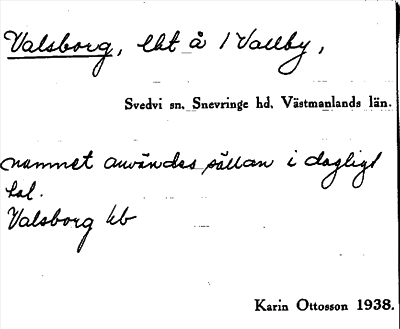 Valsborg, lht å 1 Vallby,
Svedvi sn, Snevringe hd, Västmanlands län.
namnet användes sällan i dagligt
tal.
Valsborg kb
Karin Ottosson 1938.